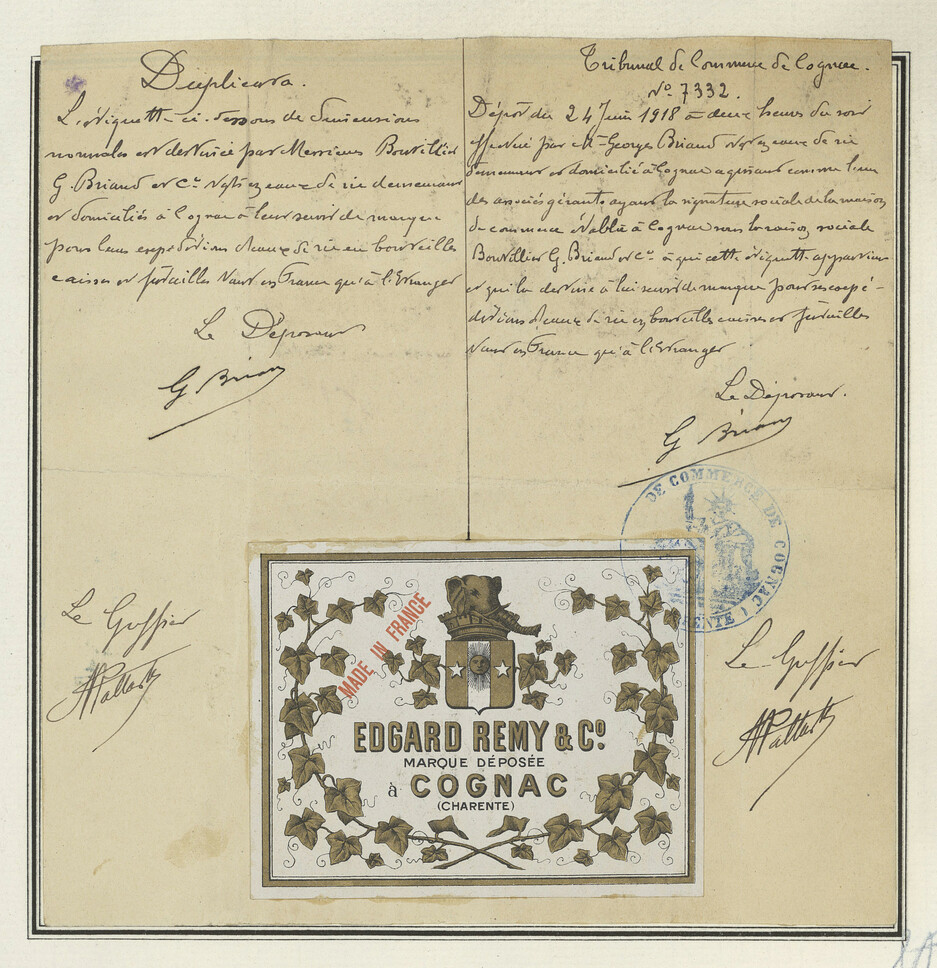 Duplicata.
L. vignette ci-dessous de dimensions
normales est destinée par Messieurs Boutillier
G. Briand et Cie Négts en eaux de vie demeurant
et domiciliés à Cognac à leur servir de marque
pour leurs expéditions d'eaux de vie en bouteilles
caisses et futailles tant en France qu'à l'Etranger
Le Déposant
G Briand
Le Greffier
Tribunal de Commerce de Cognac.
No 7332.
Dépôt du 24 Juin 1918 à deux heures du soir
effectué par Mr Georges Briand Négt en eaux de vie
demeurant et domicilié à Cognac agissant comme l'un
des associés gérants ayant la signature sociale de la maison
de commerce établie à Cognac sous la raison sociale
Boutillier G. Briand et Cie à qui cette vignette appartient
et qui la destine à lui servir de marque pour ses expé-
ditions d'eaux de vie en bouteilles caisses et futailles
tant en France qu'à l'Etranger
Le Déposant.
G Briand
DE COMMERCE DE COGNAC
Le Greffier
MADE IN FRANCE
EDGARD REMY & Co.
MARQUE DÉPOSÉE
à COGNAC
(CHARENTE)